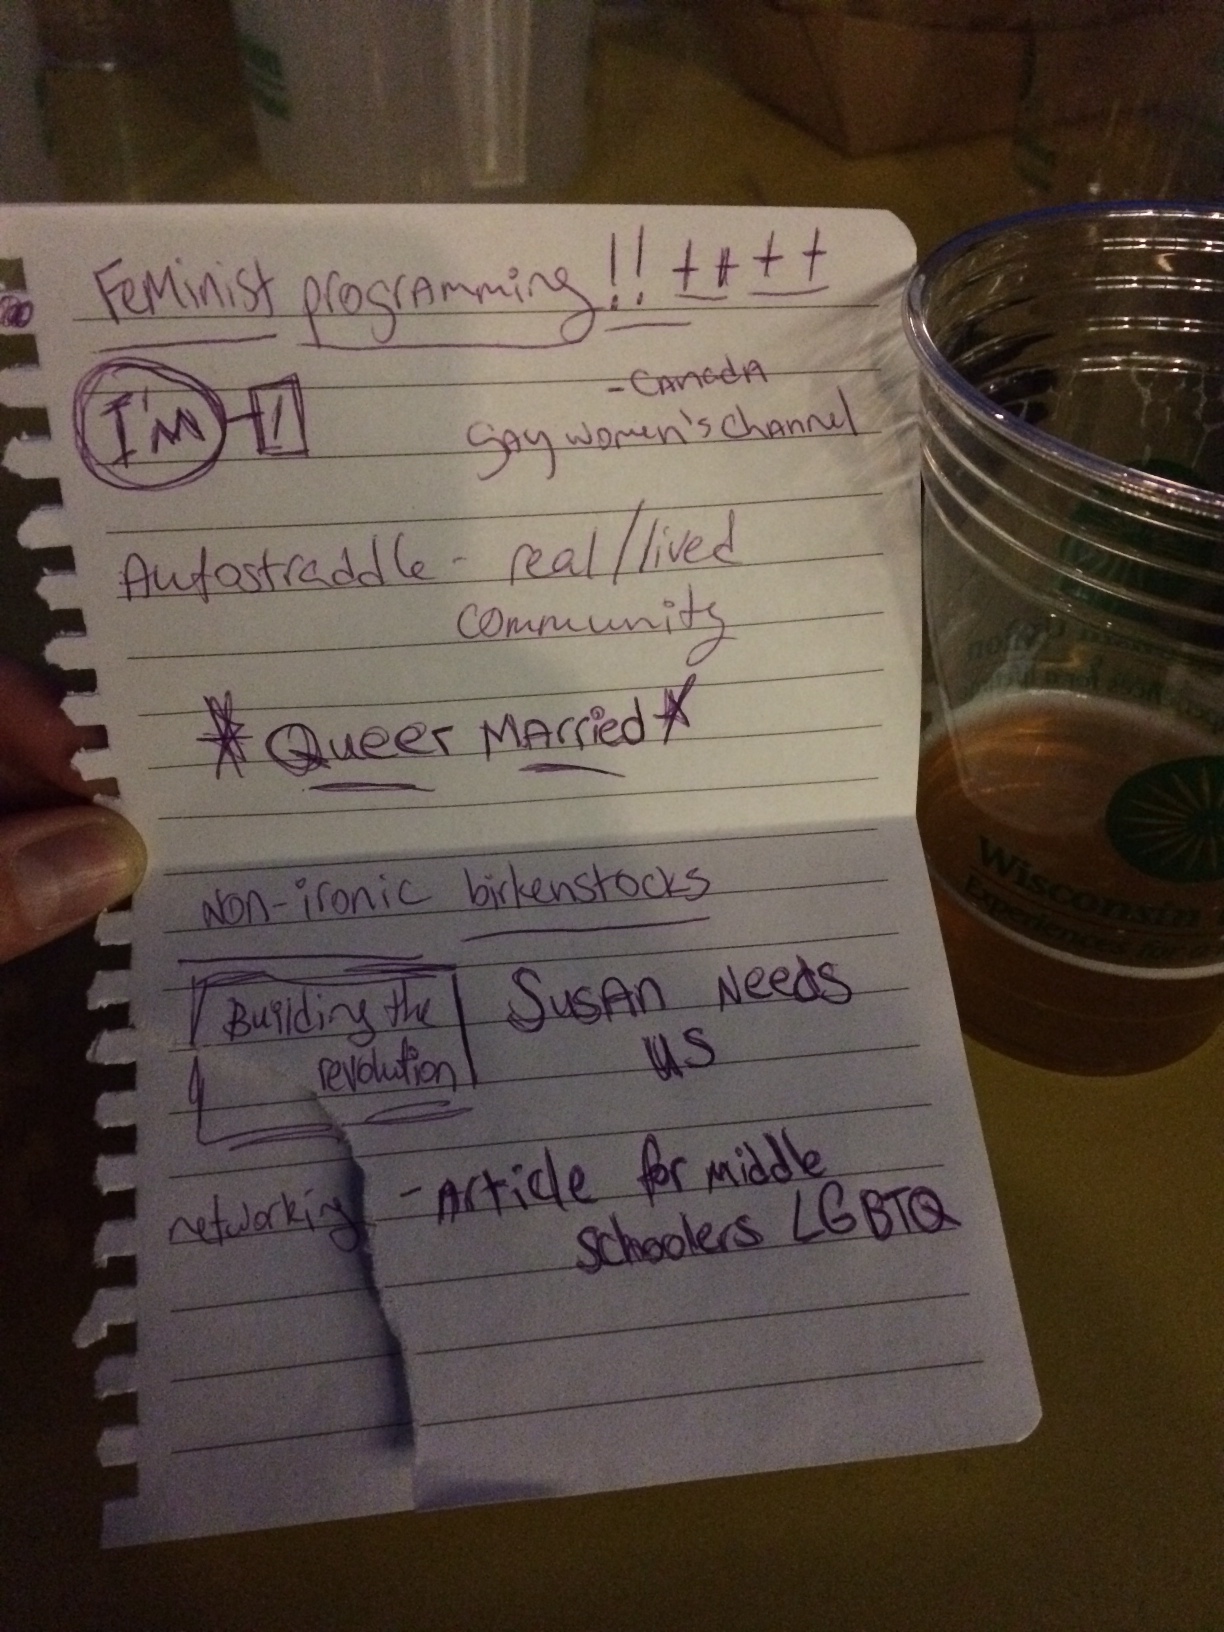 Feminist programming!! ++++
I'm - !
- Canada
gay women's channel
Autostraddle - real/lived
community
* Queer Married *
Non-ironic birkenstocks
Building the
revolution
Susan Needs
us
networking
- Article for middle
schoolers LGBTQ
Wisconsin
Experiences for a